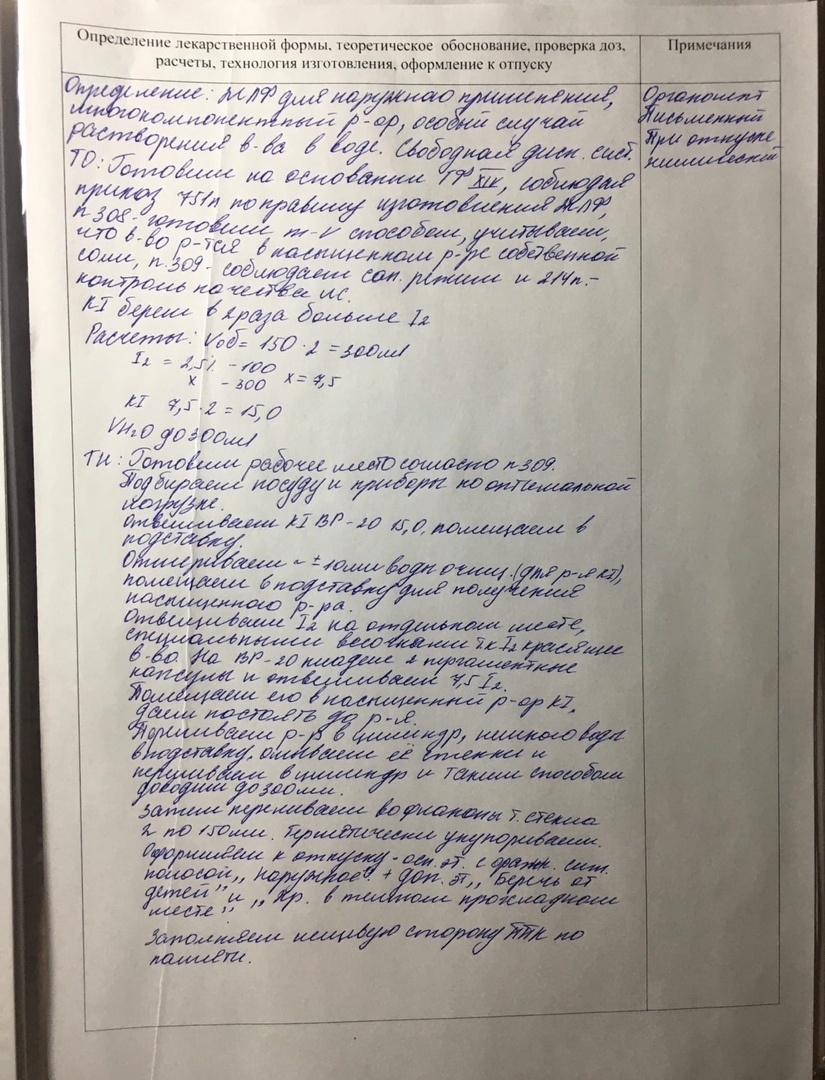 Определение лекарственной формы, теоретическое обоснование, проверка доз,
расчеты, технология изготовления, оформление к отпуску
Примечания
Определение: ЖЛФ для наружного применения,
многокомпонентный р-ор, особый случай
растворения в-ва в воде. Свободная дисп. сист.
ТО: Готовим на основании ГФ XIV, соблюдая
приказ 751н по правилу изготовления ЖЛФ,
п-308- готовим m-v способом, учитываем,
что в-во р-тся в насыщенном р-ре собственной
соли, п.309- соблюдаем сан. режим и 214п.-
контроль качества ЛС.
KI берем в 2 раза больше I₂
Расчеты: Vоб= 150 · 2 = 300мл
I₂ = 2,5г. - 100
x - 300 x = 7,5
KI 7,5·2 = 15,0
VH₂O до 300мл
ТИ: Готовим рабочее место согласно п-309.
Подбираем посуду и приборы по оптимальной
нагрузке.
Отвешиваем KI ВР-20 15,0, помещаем в
подставку.
Отмериваем ~ ± 10мл воды очищ. (для р-я KI),
помещаем в подставку для получения
насыщенного р-ра.
Отвешиваем I₂ на отдельном месте,
специальными весочками тк I₂ красящее
в-во. На ВР-20 кладем 2 пергаментные
капсулы и отвешиваем 7,5 I₂.
Помещаем его в насыщенный р-ор KI,
даем постоять до р-я.
Переливаем р-р в цилиндр, немного воды
в подставку, омываем её стенки и
переливаем в цилиндр и таким способом
доводим до 300мл.
Затем переливаем во флаконы т. стекла
2 по 150мл. Герметически укупориваем.
Оформляем к отпуску- осн. эт. с оранж. сиг.
полосой „Наружное“ + доп. эт „Беречь от
детей" и „Хр. в темном прохладном
месте"
Заполняем лицевую сторону ППК по
памяти.
Органолепт
Письменный
При отпуске
химический